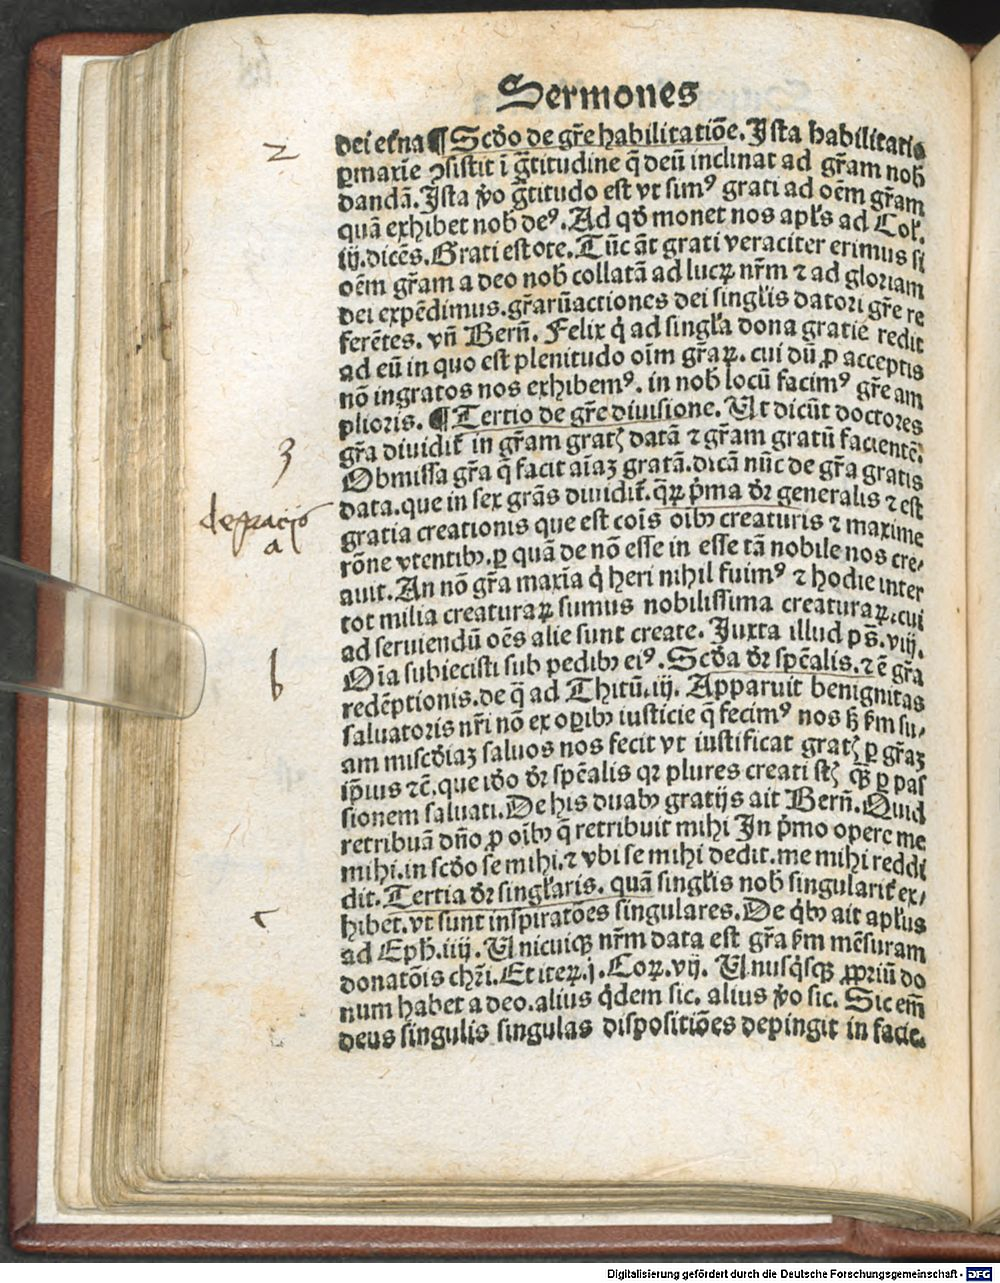 Sermones
dei et̾na ¶ Scd̾o de gr̄e habilitatiōe. Ista habilitatio
ꝑmaxīe ꝯsistit ī g̃titudine q̄ deū inclinat ad gr̄am nob̾
dandā. Ista v̾o g̃titudo est vt simꝰ grati ad oēm gr̄am
quā exhibet nob̾ deꝰ. Ad qd̾ monet nos apl̾s ad Col̾.
iij. dicēs. Grati estote. Tūc āt grati veraciter erimus si
oēm gr̄am a deo nob̾ collatā ad lucꝝ nr̄m ⁊ ad gloriam
dei expēdimus. gr̄arū actiones dei singl̾is datori gr̄e re
ferētes. vn̄ Bern̄. Felix q̇ ad singl̾a dona gratie redit
ad eū in quo est plenitudo oīm gr̄aꝝ. cui dū ꝓ acceptis
nō ingratos nos exhibemꝰ. in nob̾ locū facimꝰ gr̄e am
plioris. ¶ Tertio de gr̄e diuisione. Ut dicūt doctores
gr̄a diuidit̾ in gr̄am gratꝭ datā ⁊ gr̄am gratū facientē.
Obmissa gr̄a q̄ facit aīaꝫ gratā. dicā nūc de gr̄a gratis
data. que in sex grās diuidit̾. q̄ꝝ p̾ma dr̄ generalis ⁊ est
gratia creationis que est coīs oibꝰ creaturis ⁊ maxime
rōne vtentibꝰ. ꝑ quā de nō esse in esse tā nobile nos cre⸗
auit. An nō gr̄a maxīa q̇ heri nihil fuimꝰ ⁊ hodie inter
tot milia creaturaꝝ sumus nobilissima creaturaꝝ. cui
ad seruiendū oēs alie sunt create. Iuxta illud ps̄. viij.
Oīa subiecisti sub pedibꝰ eiꝰ. Scd̾a dr̄ spēalis. ⁊ ē gr̄a
redēptionis. de q̄ ad Thitū. iij. Apparuit benignitas
saluatoris nr̄i nō ex oꝑibꝰ iusticie q̄ fecimꝰ nos sꝫ s̾m su⸗
am misc̄diaꝫ saluos nos fecit vt iustificat gratꝭ ꝑ gr̄aꝫ
ip̄ius ⁊c̄. que iō dr̄ spēalis qꝛ plures creati st̄ ꝙ̄ ꝑ pas
sionem saluati. De his duabꝰ gratijs ait Bern̄. Quid
retribuā dn̄o ꝓ oībꝰ q̄ retribuit mihi In p̾mo opere me
mihi. in scd̾o se mihi. ⁊ vbi se mihi dedit. me mihi reddi
dit. Tertia dr̄ singl̾aris. quā singl̾is nob̾ singularit̾ ex⸗
hibet. vt sunt inspiratōes singulares. De q̇bꝰ ait apl̾us
ad Eph̾. iiij. Unicuiqꝫ nr̄m data est gr̄a s̾m mēsuram
donatōis chr̄i. Et iteꝝ. j. Coꝝ. vij. Unusq̇sqꝫ ꝓpriū do
num habet a deo. alius q̇dem sic. alius v̾o sic. Sic em̄
deus singulis singulas dispositiōes depingit in facie.
2
3
de gracijs
a
b
c
Digitalisierung gefördert durch die Deutsche Forschungsgemeinschaft - DFG